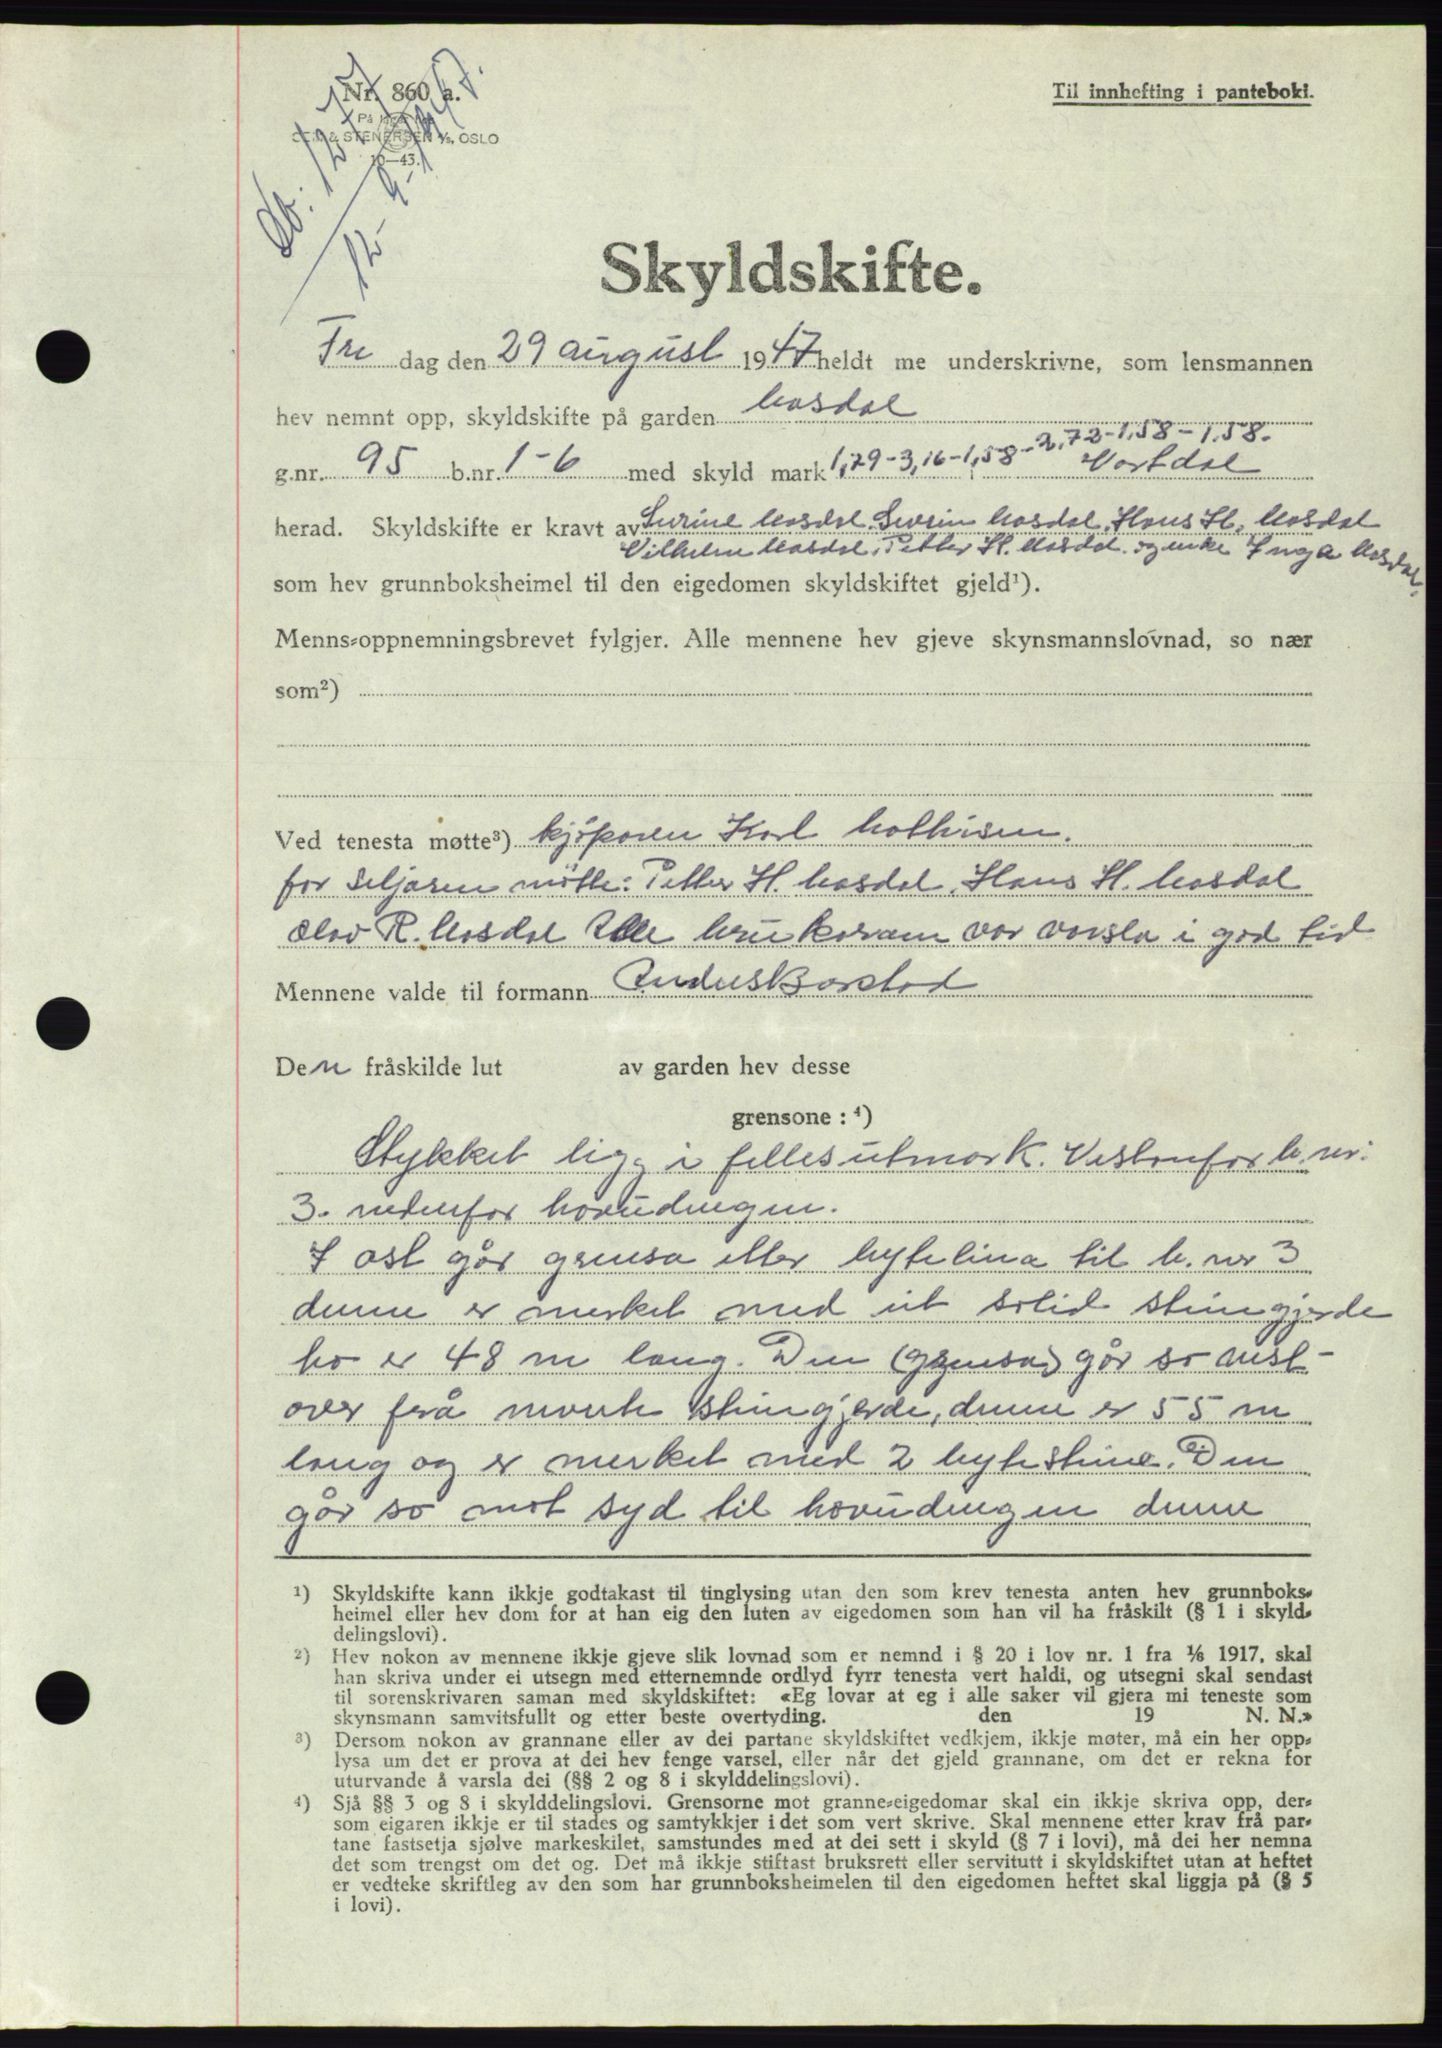 Nr. 860 a.
På lager
& STENERSEN A/S, OSLO
10—43.
Db. 1277
12-9-1947.
Til innhefting i panteboki.
Skyldskifte.
Fre dag den 29 august 1947 heldt me underskrivne, som lensmannen
hev nemnt opp, skyldskifte på garden Mosdal
2,72-1,58-1,58.
g.nr. 95 b.nr. 1-6 med skyld mark 1,79-3,16-1,58- i Vartdal
herad. Skyldskifte er kravt av Surine Mosdal, Severin Mosdal, Hans H. Mosdal
Vilhelm Mosdal, Petter H. Mosdal og enke Inga Mosdal,
som hev grunnboksheimel til den eigedomen skyldskiftet gjeld¹).
Menns-oppnemningsbrevet fylgjer. Alle mennene hev gjeve skynsmannslovnad, so nær
som²)
Ved tenesta møtte³) kjöparen Karl Mathisen.
for seljaren mötte: Petter H. Mosdal, Hans H. Mosdal
Olav R. Mosdal Alle brukarane var varsla i god tid
Mennene valde til formann Anders Barstad
Den fråskilde lut av garden hev desse
grensone: ⁴)
Stykket ligg i felles utmark. Vestenfor b.nr.
3. nedenfor hovudvegen.
I ost går grensa eller bytelina til b. nr 3
denne er merket med eit solid steingjerde
ho er 48 m lang. Den (grensa) går so vest-
over frå nevnte steingjerde, denne er 55 m
lang og er merket med 2 bytesteine. Den
går so mot syd til hovudvegen denne
¹) Skyldskifte kann ikkje godtakast til tinglysing utan den som krev tenesta anten hev grunnboks-
heimel eller hev dom for at han eig den luten av eigedomen som han vil ha fråskilt (§ 1 i skyld-
delingslovi).
²) Hev nokon av mennene ikkje gjeve slik lovnad som er nemnd i § 20 i lov nr. 1 fra ⅙ 1917, skal
han skriva under ei utsegn med etternemnde ordlyd fyrr tenesta vert haldi, og utsegni skal sendast
til sorenskrivaren saman med skyldskiftet: «Eg lovar at eg i alle saker vil gjera mi teneste som
skynsmann samvitsfullt og etter beste overtyding. den 19 N. N.»
³) Dersom nokon av grannane eller av dei partane skyldskiftet vedkjem, ikkje møter, må ein her opp-
lysa um det er prova at dei hev fenge varsel, eller når det gjeld grannane, om det er rekna for
uturvande å varsla dei (§§ 2 og 8 i skylddelingslovi).
⁴) Sjå §§ 3 og 8 i skylddelingslovi. Grensorne mot granne-eigedomar skal ein ikkje skriva opp, der-
som eigaren ikkje er til stades og samtykkjer i det som vert skrive. Skal mennene etter krav frå par-
tane fastsetja sjølve markeskilet, samstundes med at dei sett i skyld (§ 7 i lovi), må dei her nemna
det som trengst om det og. Det må ikkje stiftast bruksrett eller servitutt i skyldskiftet utan at heftet
er vedteke skriftleg av den som har grunnboksheimelen til den eigedomen heftet skal liggja på (§ 5
i lovi).